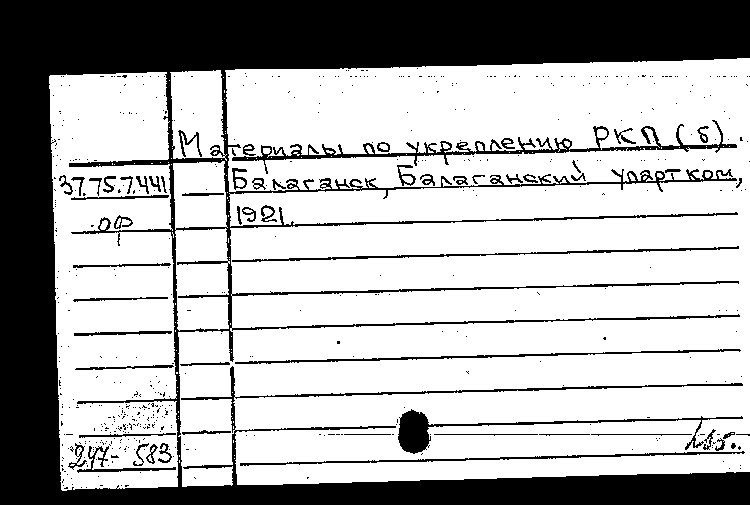 Материалы по укреплению РКП (б).
37.75.7.441 Балаганск, Балаганский упартком,
оф 1921.
247-583